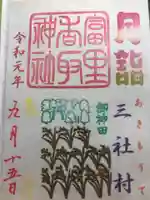 月詣
三社村
富里
香取
神社
御神田
令和元年
九月十五日